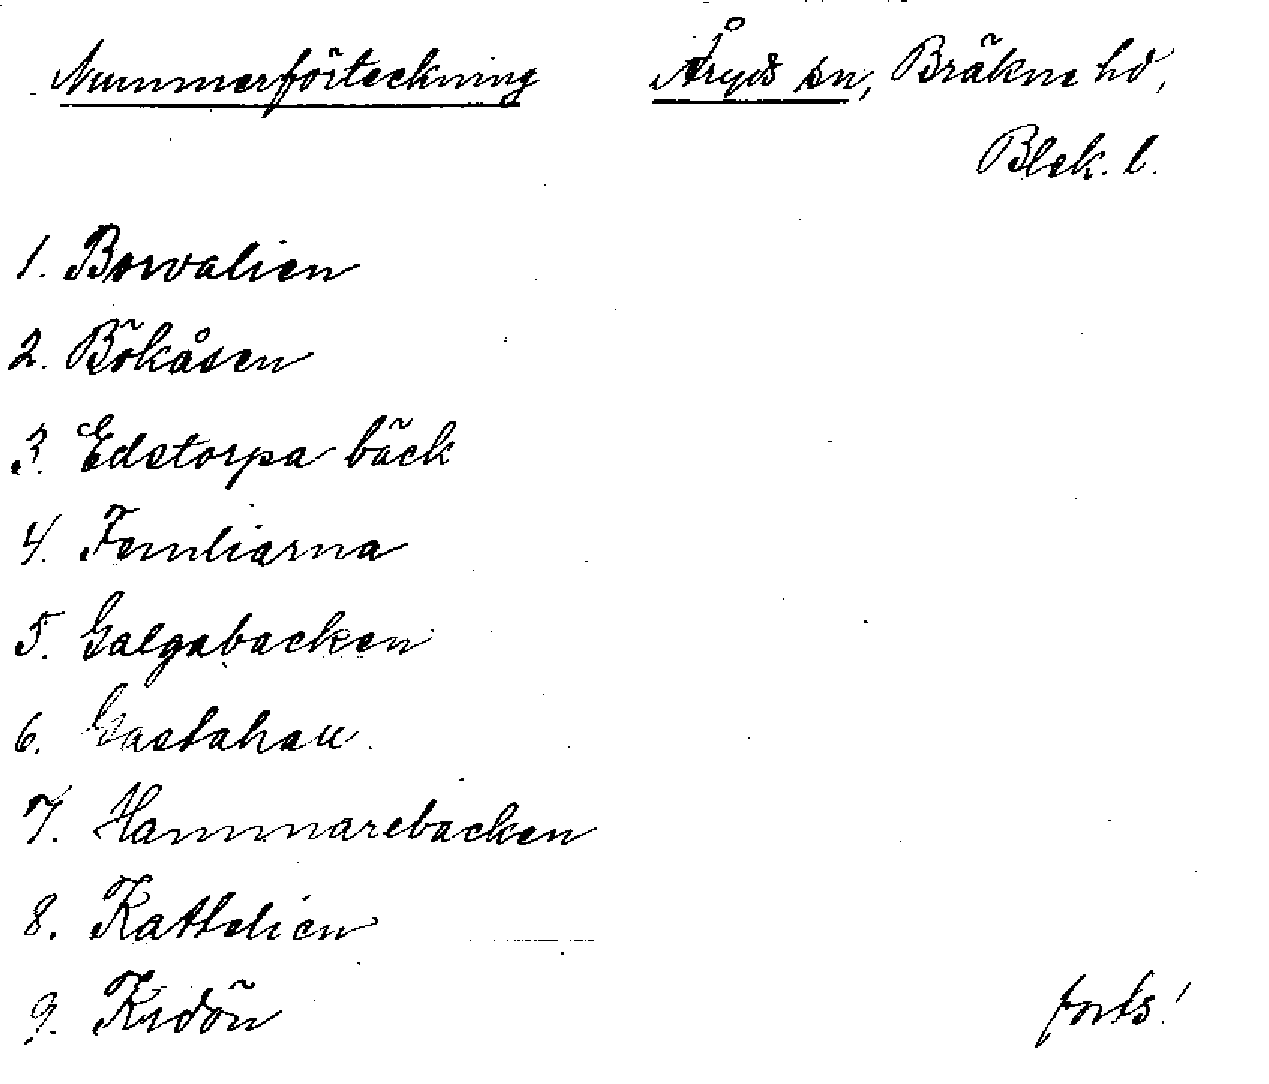 Nummerförteckning Åryds sn, Bräkne hd,
Blek. l.
1. Borvalien
2. Bökåsen
3. Edstorpa bäck
4. Femliarna
5. Galgabacken
6. Gastahall
7. Hammarebacken
8. Kattelien
9. Kidön
forts!